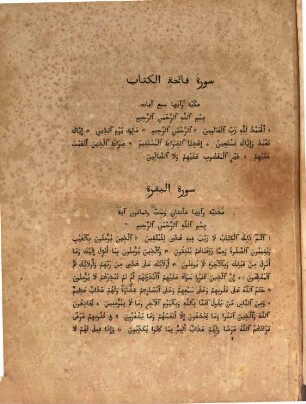 سورة فاتحة الكتاب
مكية وآيها سبع آيات
بِسْمِ اللَّهِ الرَّحْمَنِ الرَّحِيمِ
الْحَمْدُ لِلَّهِ رَبِّ الْعَالَمِينَ الرَّحْمَنِ الرَّحِيمِ مَالِكِ يَوْمِ الدِّينِ إِيَّاكَ
نَعْبُدُ وَإِيَّاكَ نَسْتَعِينُ إِهْدِنَا الصِّرَاطَ الْمُسْتَقِيمَ صِرَاطَ الَّذِينَ أَنْعَمْتَ
عَلَيْهِمْ غَيْرِ الْمَغْضُوبِ عَلَيْهِمْ وَلَا الضَّالِّينَ
سورة البقرة
مدنية وآيها مائتان وست وثمانون آية
بِسْمِ اللَّهِ الرَّحْمَنِ الرَّحِيمِ
الم ذَلِكَ الْكِتَابُ لَا رَيْبَ فِيهِ هُدًى لِلْمُتَّقِينَ الَّذِينَ يُؤْمِنُونَ بِالْغَيْبِ
وَيُقِيمُونَ الصَّلَاةَ وَمِمَّا رَزَقْنَاهُمْ يُنْفِقُونَ وَالَّذِينَ يُؤْمِنُونَ بِمَا أُنْزِلَ إِلَيْكَ وَمَا
أُنْزِلَ مِنْ قَبْلِكَ وَبِالْآخِرَةِ هُمْ يُوقِنُونَ أُولَئِكَ عَلَى هُدًى مِنْ رَبِّهِمْ وَأُولَئِكَ هُمُ
الْمُفْلِحُونَ إِنَّ الَّذِينَ كَفَرُوا سَوَاءٌ عَلَيْهِمْ أَأَنْذَرْتَهُمْ أَمْ لَمْ تُنْذِرْهُمْ لَا يُؤْمِنُونَ
خَتَمَ اللَّهُ عَلَى قُلُوبِهِمْ وَعَلَى سَمْعِهِمْ وَعَلَى أَبْصَارِهِمْ غِشَاوَةٌ وَلَهُمْ عَذَابٌ عَظِيمٌ
وَمِنَ النَّاسِ مَنْ يَقُولُ آمَنَّا بِاللَّهِ وَبِالْيَوْمِ الْآخِرِ وَمَا هُمْ بِمُؤْمِنِينَ يُخَادِعُونَ
اللَّهَ وَالَّذِينَ آمَنُوا وَمَا يَخْدَعُونَ إِلَّا أَنْفُسَهُمْ وَمَا يَشْعُرُونَ فِي قُلُوبِهِمْ مَرَضٌ
فَزَادَهُمُ اللَّهُ مَرَضًا وَلَهُمْ عَذَابٌ أَلِيمٌ بِمَا كَانُوا يَكْذِبُونَ وَإِذَا قِيلَ لَهُمْ لَا